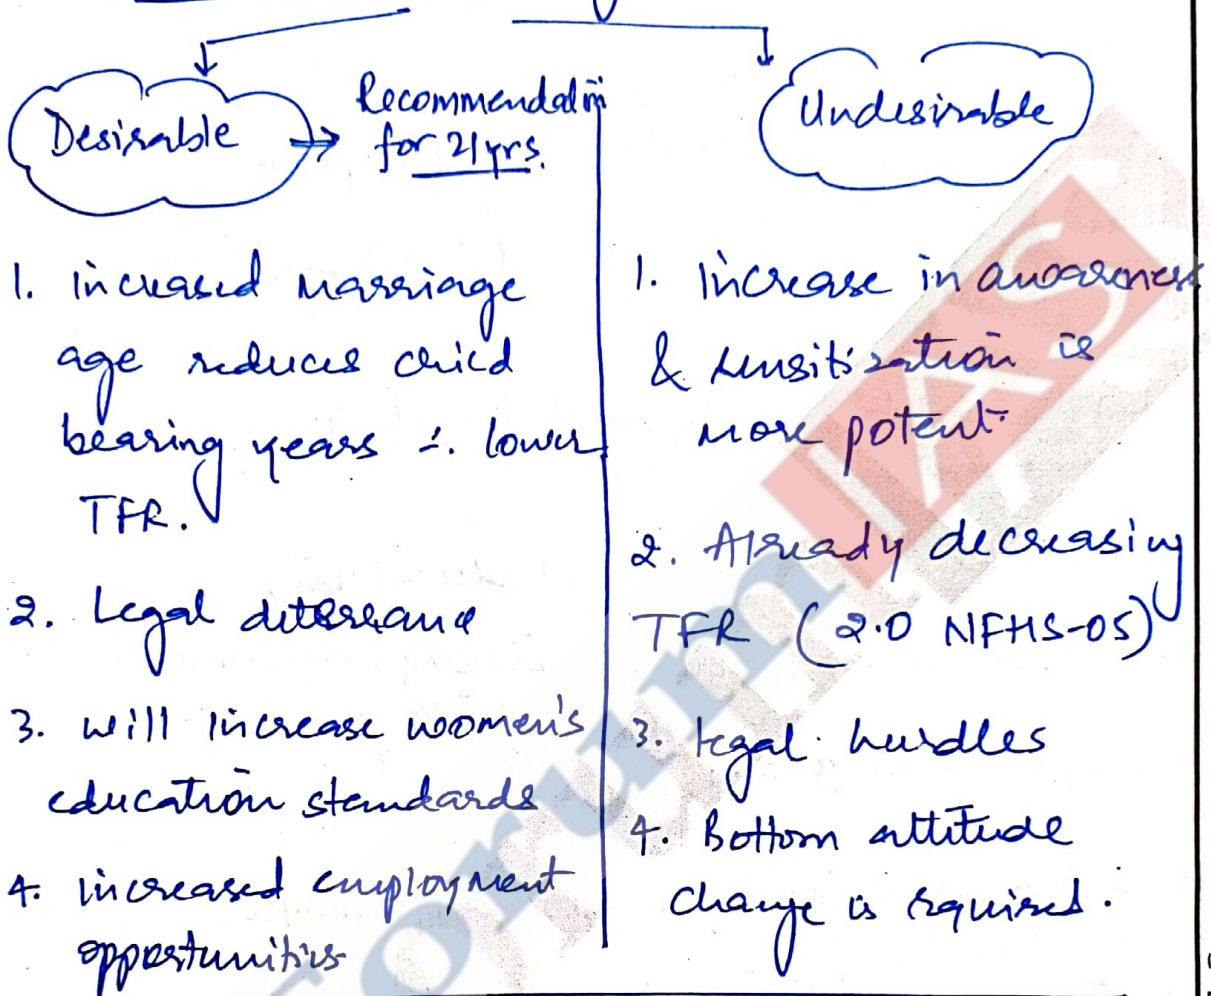 Desirable
Recommendation
for 21 yrs.
1. increased marriage
age reduces child
bearing years ∴ lower
TFR.
2. Legal deterrance
3. will increase women's
education standards
4. increased employment
opportunities
Undesirable
1. Increase in awareness
& sensitization is
more potent.
2. Already decreasing
TFR (2.0 NFHS-05)
3. legal hurdles
4. Bottom attitude
change is required.
Forum IAS